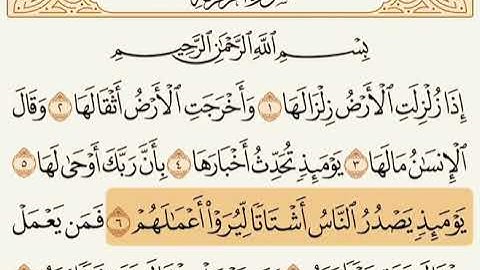 بِسْمِ اللَّهِ الرَّحْمَٰنِ الرَّحِيمِ
إِذَا زُلْزِلَتِ الْأَرْضُ زِلْزَالَهَا ١ وَأَخْرَجَتِ الْأَرْضُ أَثْقَالَهَا ٢ وَقَالَ
الْإِنسَانُ مَا لَهَا ٣ يَوْمَئِذٍ تُحَدِّثُ أَخْبَارَهَا ٤ بِأَنَّ رَبَّكَ أَوْحَىٰ لَهَا ٥
يَوْمَئِذٍ يَصْدُرُ النَّاسُ أَشْتَاتًا لِّيُرَوْا أَعْمَالَهُمْ ٦ فَمَن يَعْمَلْ